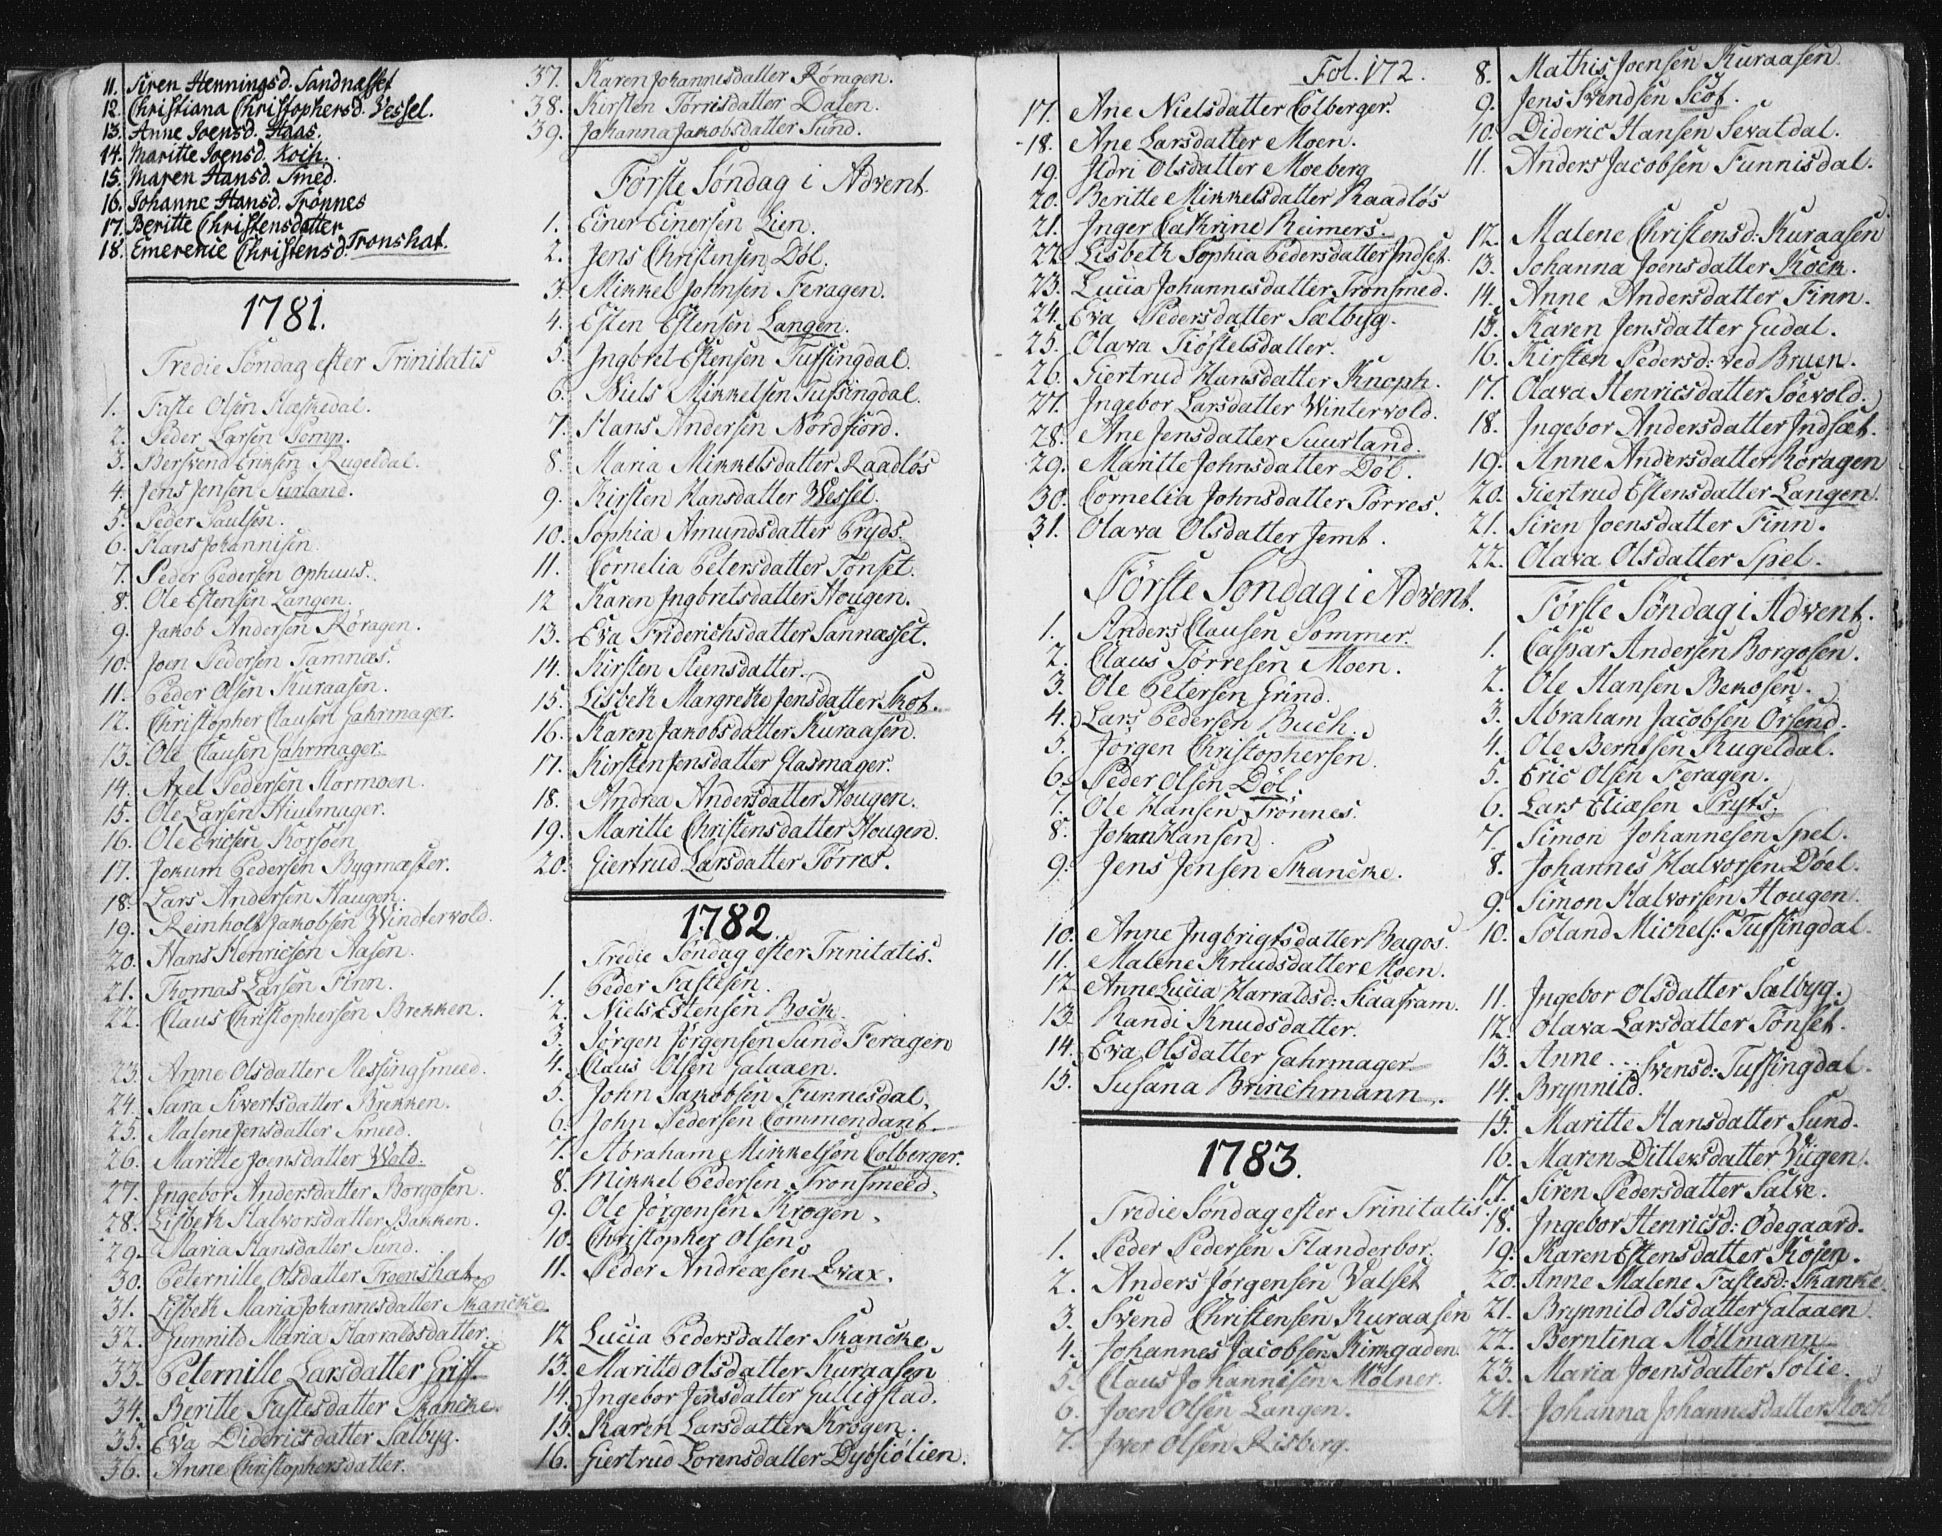 11. Siren Henningsd. Sandnasset
12. Christiana Christophersd. Vessel.
13. Anne Joensd. Haas.
14. Maritte Joensd. Koch.
15. Maren Hansd. Smed.
16. Johanne Hansd. Trönnes
17. Beritte Christensdatter
18. Emerence Christensd. Tronshat.
1781.
Tredie Söndag efter Trinitatis
1. Faste Olsen Hæskedal.
2. Peder Larsen Tomp.
3. Bersvend Eriksen Rugeldal.
4. Jens Jensen Surland.
5. Peder Paulsen.
6. Hans Johannisen
7. Peder Pedersen Ophuus.
8. Ole Estensen Langen.
9. Jakob Andersen Röragen.
10. Joen Pedersen Tamnæs.
11. Peder Olsen Kuraasen.
12. Christopher Clausen Gahrmager.
13. Ole Clausen Gahrmager.
14. Axel Pedersen Stormoen.
15. Ole Larsen Hiulmager.
16. Ole Ericsen Korsoen
17. Jokum Pedersen Bygmæster.
18. Lars Andersen Haugen.
19. Reinholt Jakobsen Windtervold.
20. Hans Henricsen Aasen.
21. Thomas Larsen Finn.
22. Claus Christophersen Brekken.
23. Anne Olsdatter Messingsmeed.
24. Sara Sivertsdatter Brekken.
25. Malene Jensdatter Smeed.
26. Maritte Joensdatter Wold.
27. Ingebor Andersdatter Borgosen.
28. Lisbeth Halvorsdatter Bakken.
29. Maria Hansdatter Sund.
30. Peternille Olsdatter Troenshat.
31. Lisbeth Maria Johannisdatter Skancke.
32. Gunnild Maria Harraldsdatter.
33. Peternille Larsdatter Grift
34. Beritte Fastesdatter Skancke.
35. Eva Didericsdatter Sælbyg.
36. Anne Christophersdatter.
37. Karen Johannisdatter Röragen.
38. Kirsten Torrisdatter Dalen.
39. Johanna Jakobsdatter Sund.
Förste Söndag i Advent.
1. Einer Einersen Lien.
2. Jens Christensen Döl.
3. Mikkel Johnsen Feragen.
4. Esten Estensen Langen.
5. Ingbret Estensen Tufsingdal.
6. Niels Mikkelsen Tufsingdal.
7. Hans Andersen Nordfiord.
8. Maria Mikkelsdatter Raadlös
9. Kirsten Hansdatter Wessel.
10. Sophia Amundsdatter Pryds.
11. Cornelia Petersdatter Tönset.
12 Karen Ingbretsdatter Hougen.
13. Eva Friderichsdatter Sannæsset.
14. Kirsten Stensdatter.
15. Lisbeth Margrethe Jensdatter Skot.
16. Karen Jakobsdatter Kuraasen.
17. Kirsten Jensdatter Glasmager.
18. Andrea Andersdatter Hougen.
19. Maritte Christensdatter Hougen.
20. Giertrud Larsdatter Törres.
1782.
Tredie Söndag efter Trinitatis.
1. Peder Fastesen.
2. Niels Estensen Bock.
3. Jörgen Jörgensen Sund Feragen
4. Claus Olsen Galaaen.
5. John Jakobsen Funnesdal.
6. John Pedersen Commendant.
7. Abraham Mikkelsen Colberger.
8. Mikkel Pedersen Tronsmeed.
9. Ole Jörgensen Krogen.
10. Christopher Olsen.
11. Peder Andreæsen Qvax.
12 Lucia Pedersdatter Skancke.
13. Maritte Olsdatter Kuraasen
14. Ingebor Jensdatter Gulligstad.
15. Karen Larsdatter Krogen.
16. Giertrud Lorensdatter Dybsiölien.
Fol. 172.
17. Ane Nielsdatter Colberger.
18. Ane Larsdatter Moen.
19. Ildri Olsdatter Moeberg
20. Beritte Mikkelsdatter Raadlös
21. Inger Cathrine Reimers.
22. Lisbeth Sophia Pedersdatter Indset.
23. Lucia Johannisdatter Tronsmed.
24. Eva Pedersdatter Sælbyg.
25. Olava Tröstelsdatter.
26. Giertrud Hansdatter Knoph.
27. Ingebor Larsdatter Wintervold.
28. Ane Jensdatter Suurland.
29. Maritte Johnsdatter Döl.
30. Cornelia Johnsdatter Törres.
31. Olava Olsdatter Jemt.
Förste Söndag i Advent.
1. Anders Clausen Sommer.
2. Claus Törresen Moen.
3. Ole Petersen Grind.
4. Lars Pedersen Buch.
5. Jörgen Christophersen.
6. Peder Olsen Döl.
7. Ole Hansen Trönnes.
8. Johan Hansen.
9. Jens Jensen Skancke.
10. Anne Ingbrigtsdatter Bagos.
11. Malene Knudsdatter Moen.
12 Anne Lucia Harraldsd: Skaafram.
13. Randi Knudsdatter.
14. Eva Olsdatter Gahrmager
15. Susana Brinchmann.
1783.
Tredie Söndag efter Trinitatis.
1. Peder Pedersen Flanderbor.
2. Anders Jörgensen Valset
3. Svend Christensen Kuraasen
4. Johannes Jacobsen Kirkgaden.
5. Claus Johannisen Mölner.
6. Joen Olsen Langen.
7. Iver Olsen Risberg.
8. Mathis Joensen Kuraasen.
9. Jens Svendsen Scot.
10. Dideric Hansen Sevatdal.
11. Anders Jacobsen Funnisdal.
12. Malene Christensd: Kuraasen
13. Johanna Joensdatter Kock.
14. Anne Andersdatter Finn.
15. Karen Jensdatter Gudal.
16. Kirsten Pedersd: ved Bruen.
17. Olava Henricsdatter Söevold.
18. Ingebor Andersdatter Indsæt.
19. Anne Andersdatter Röragen
20. Giertrud Estensdatter Langen.
21. Siren Joensdatter Finn.
22. Olava Olsdatter Spel.
Förste Söndag i Advent.
1. Caspar Andersen Borgosen.
2. Ole Hansen Bekosen.
3. Abraham Jacobsen Örsend.
4. Ole Berntsen Rugeldal.
5. Eric Olsen Feragen.
6. Lars Eliæsen Pryts.
7. Simon Johannesen Spel.
8. Johannes Halvorsen Döel.
9. Simon Halvorsen Hougen.
10. Soland Michels: Tufsingdal.
11. Ingebor Olsdatter Sælbyg.
12. Olava Larsdatter Tönset.
13. Anne ... Svensd: Tufsingdal.
14. Brynnild.
15. Maritte Hansdatter Sund.
16. Maren Ditlevsdatter Viigen.
17. Siren Pedersdatter Salve.
18. Ingebor Henricsd: Ödegaard.
19. Karen Estensdatter Kojen.
20. Anne Malene Fastesd: Skanke.
21. Brynnild Olsdatter Galaaen.
22. Berntina Möllmann
23. Maria Joensdatter Solie.
24. Johanna Johannesdatter Koch